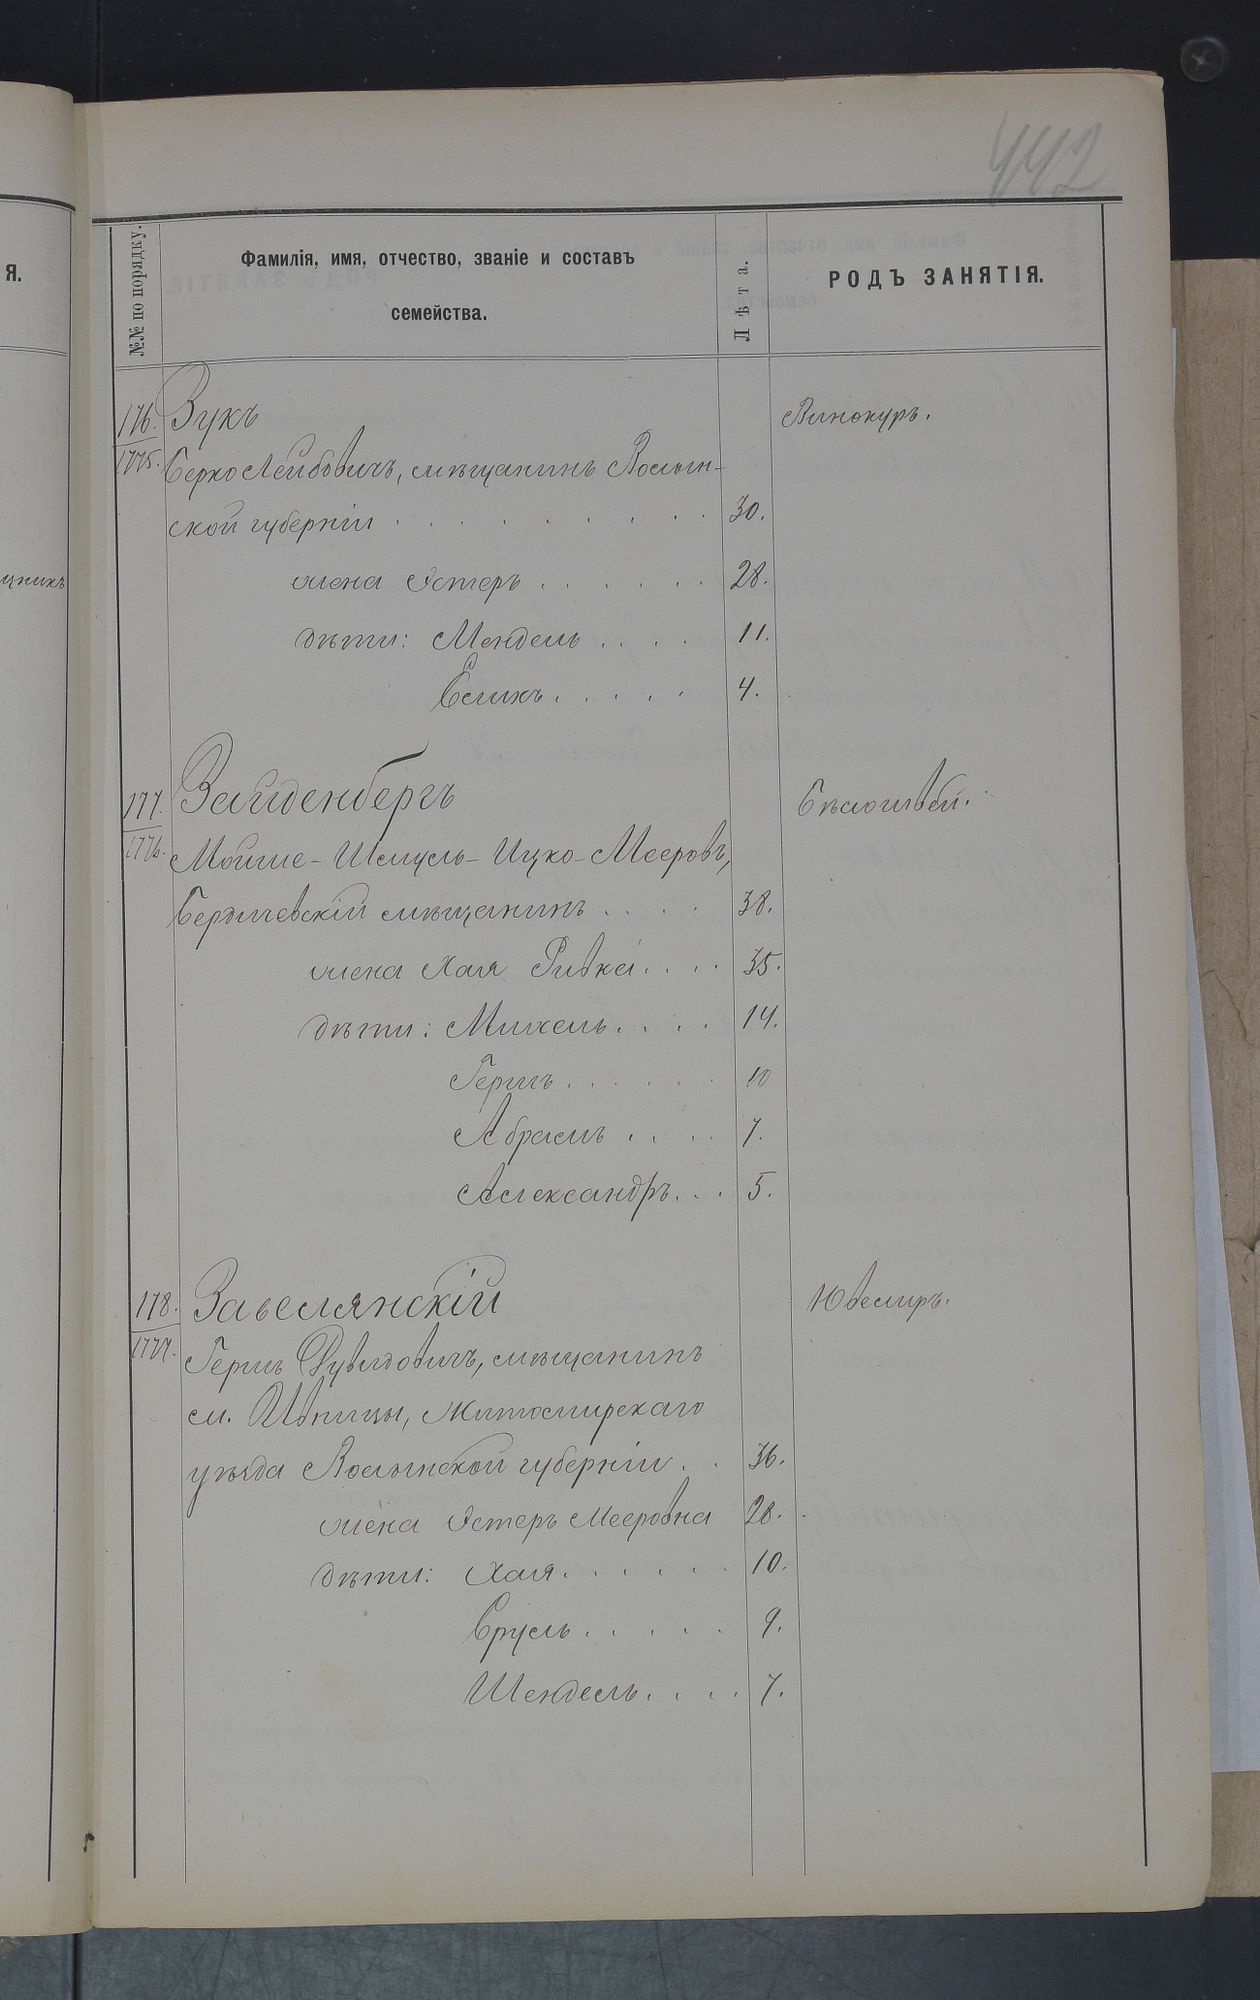 442
Я.
№№ по порядку.
Фамилія, имя, отчество, званіе и составъ
семейства.
Лѣта.
РОДЪ ЗАНЯТІЯ.
176. Зукъ Винокуръ.
1775. Берко Лейбовичъ, мѣщанинъ Волын-
ской губерніи . . . . . . . . . . 30.
жена Эстеръ . . . . . . 28.
дѣти: Мендель . . . . 11.
Еликъ . . . . . 4.
177. Зайденбергъ Бѣлошвей.
1776. Мойше-Шмуль-Ицко-Мееровъ,
Бердичевскій мѣщанинъ . . . . 38.
жена Хая Ривка . . . . 35.
дѣти: Михель . . . . 14.
Гершъ . . . . . . 10
Абрамъ . . . . 7.
Александръ . . . 5.
178. Ювелиръ.
1777. Гершъ Дувидовичъ, мѣщанинъ
м. Ивницы, Житомирскаго
уѣзда Волынской губерніи . . 36.
жена Эстеръ Мееровна 28.
дѣти: Хая . . . . . . 10.
Сруль . . . . . 9.
Шендель . . . . 7.